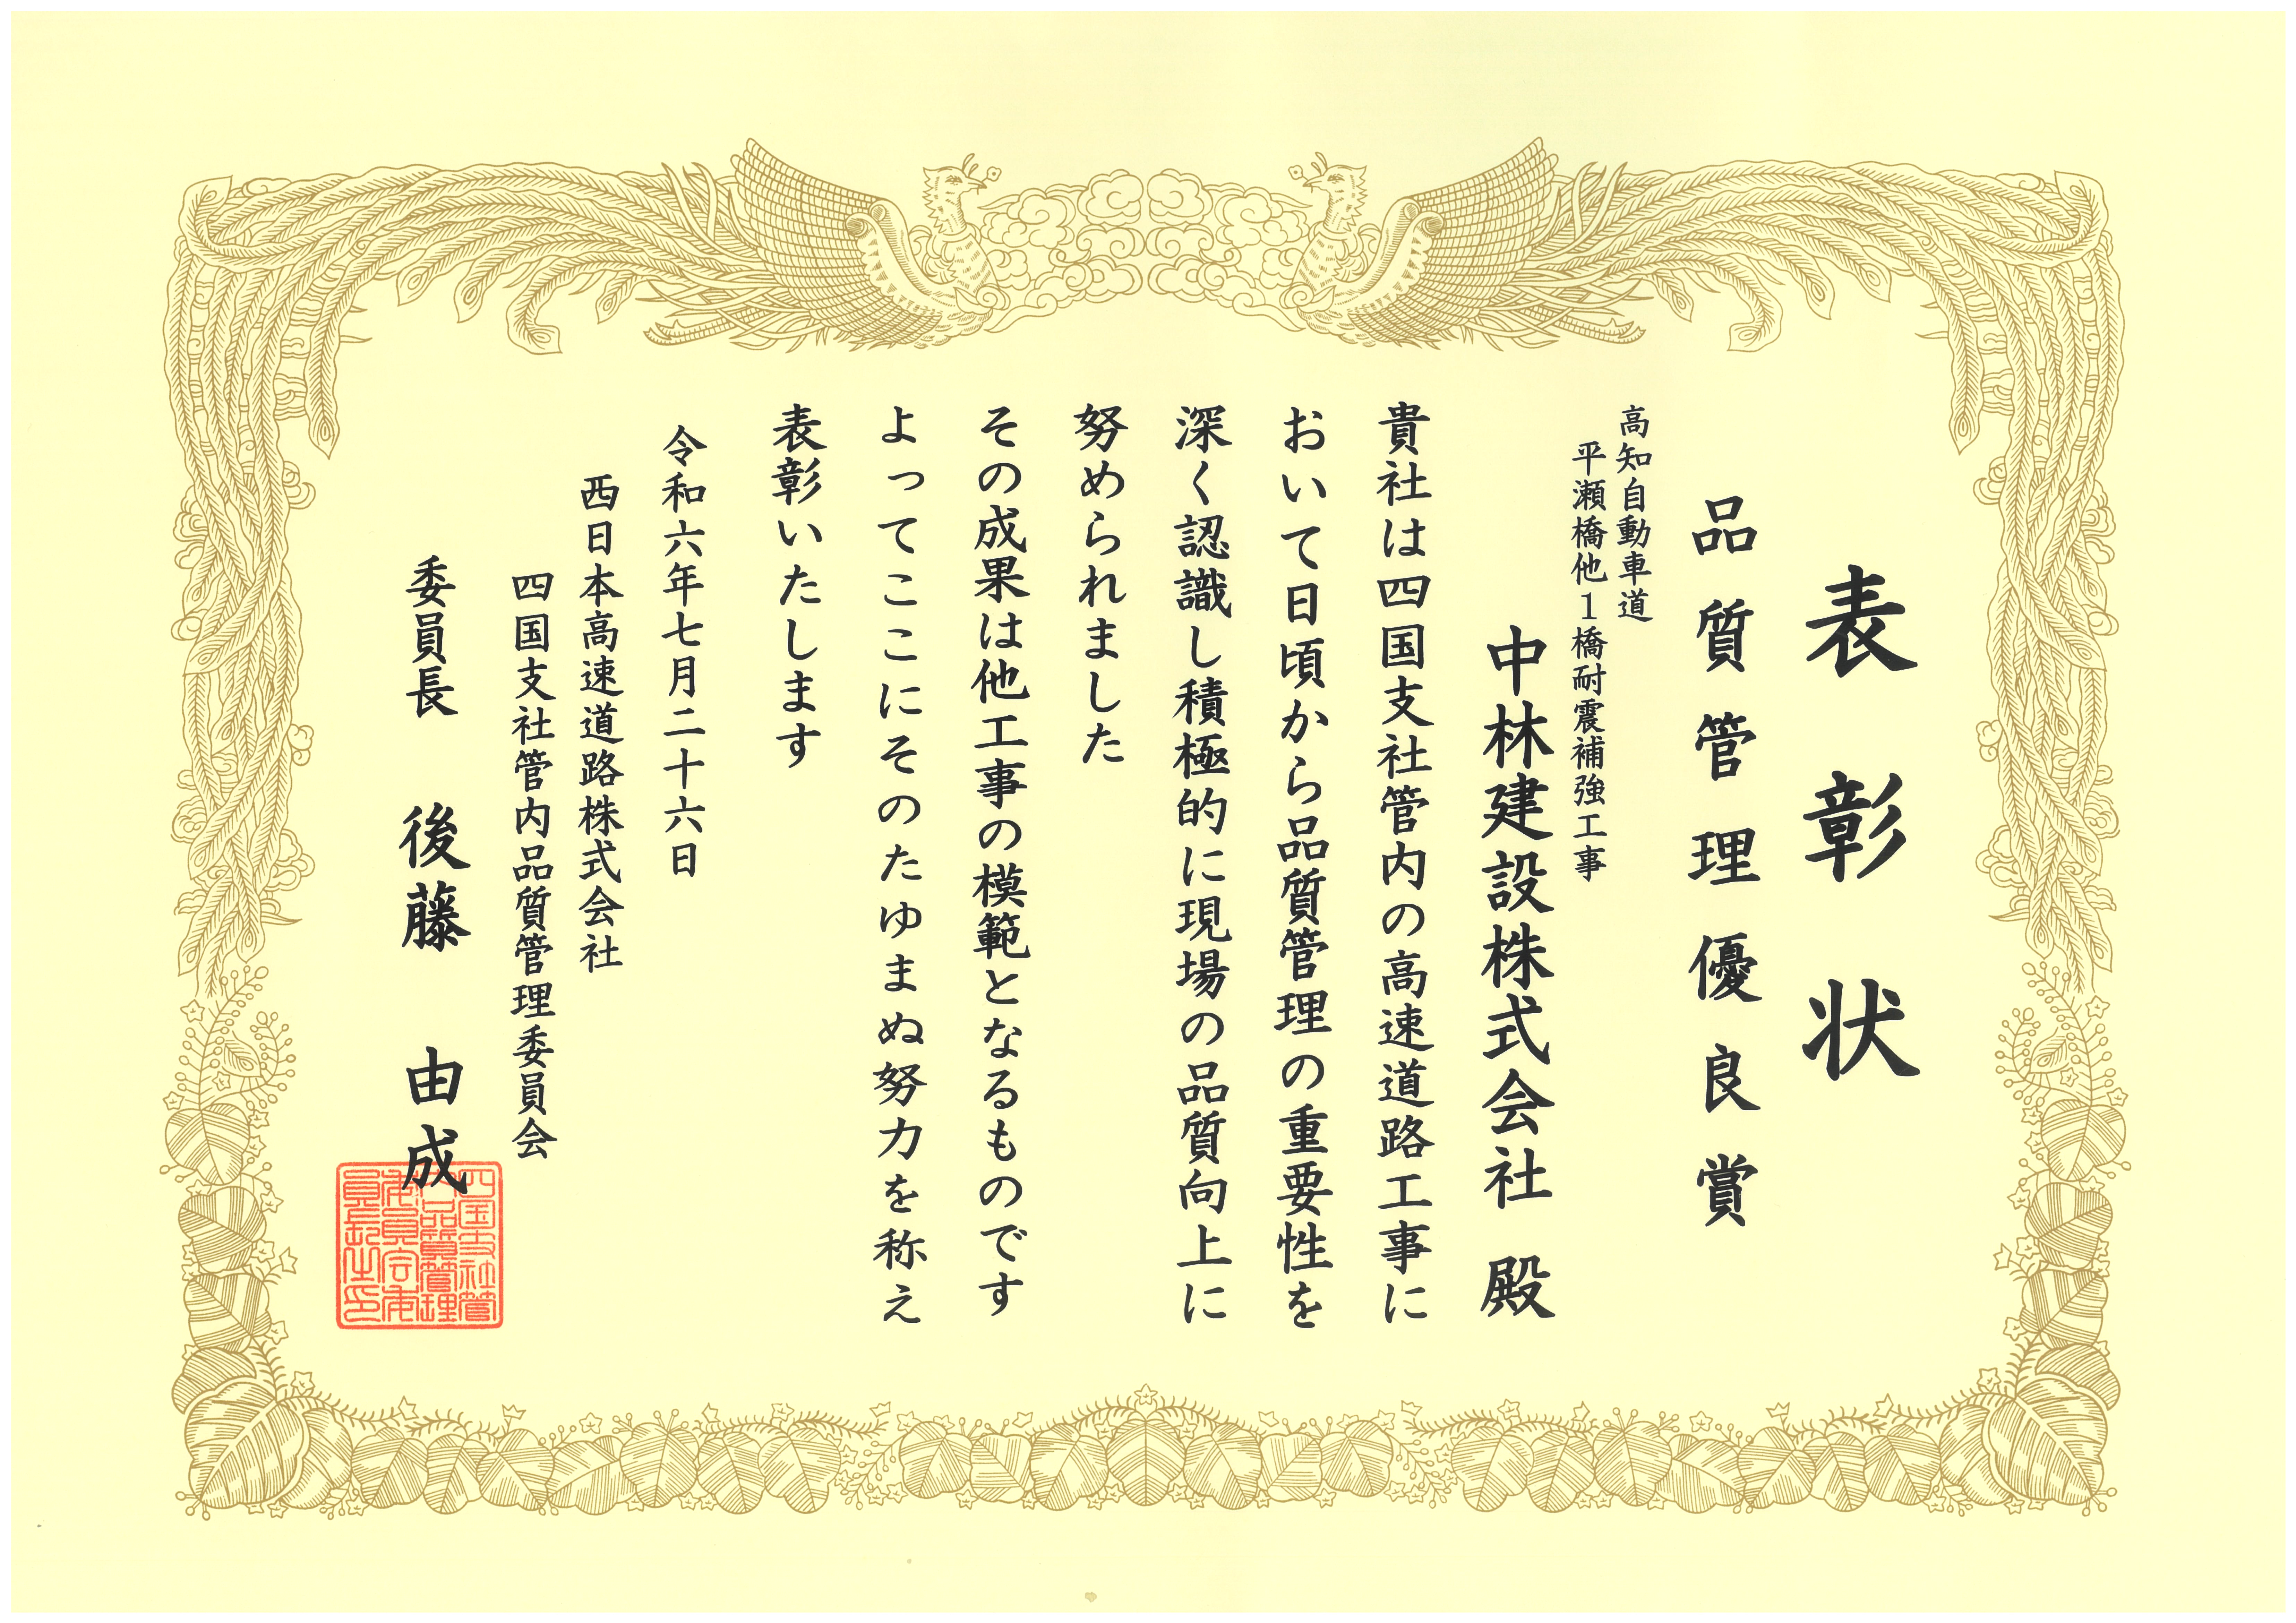 表彰状
品質管理優良賞
高知自動車道
平瀬橋他1橋耐震補強工事
中林建設株式会社 殿
貴社は四国支社管内の高速道路工事に
おいて日頃から品質管理の重要性を
深く認識し積極的に現場の品質向上に
努められました
その成果は他工事の模範となるものです
よってここにそのたゆまぬ努力を称え
表彰いたします
令和六年七月二十六日
西日本高速道路株式会社
四国支社管内品質管理委員会
委員長 後藤 由成
四国支社管
内品質管理
委員会委
員長之印